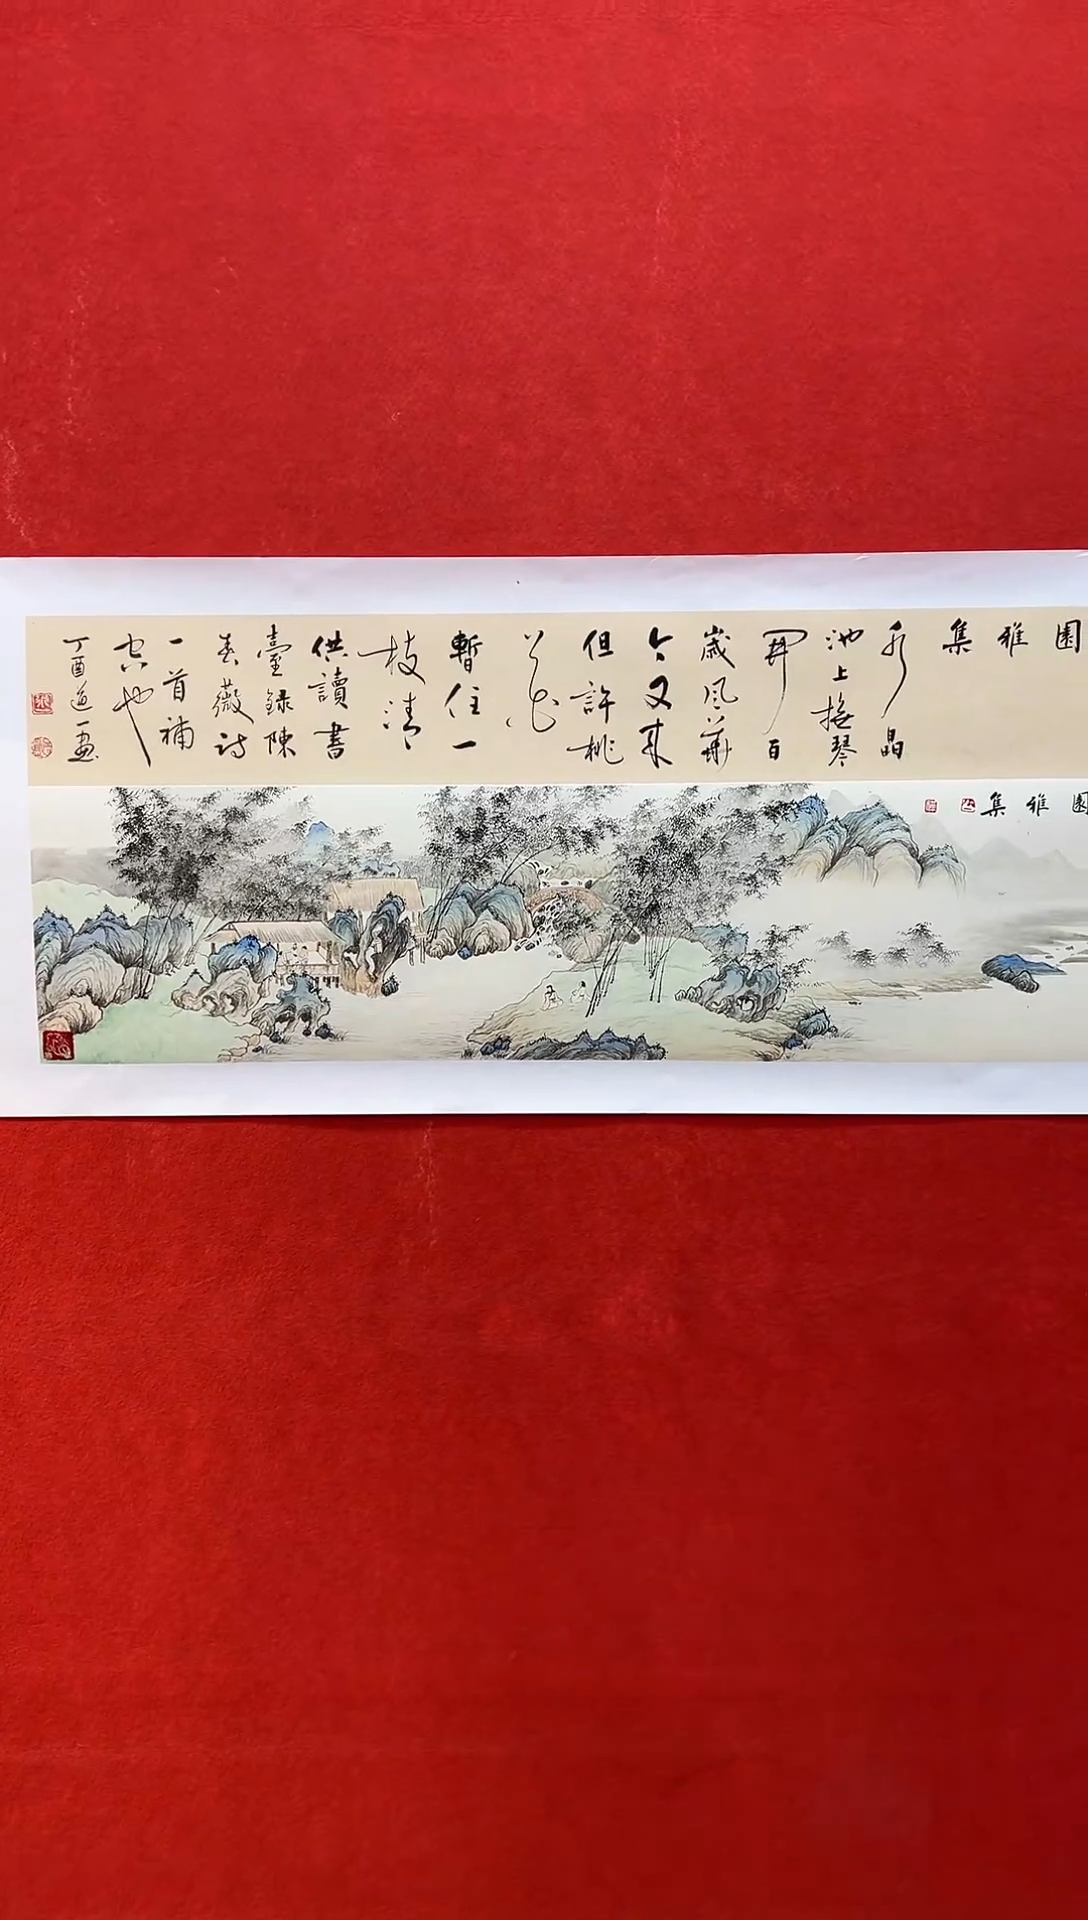 園
雅
集
水晶
池上撫琴
開百
歲風華
今又來
但許桃
花
暫住一
枝清
供讀書
臺錄陳
衣薇詩
一首補
空也
丁酉逸一畫
園雅集